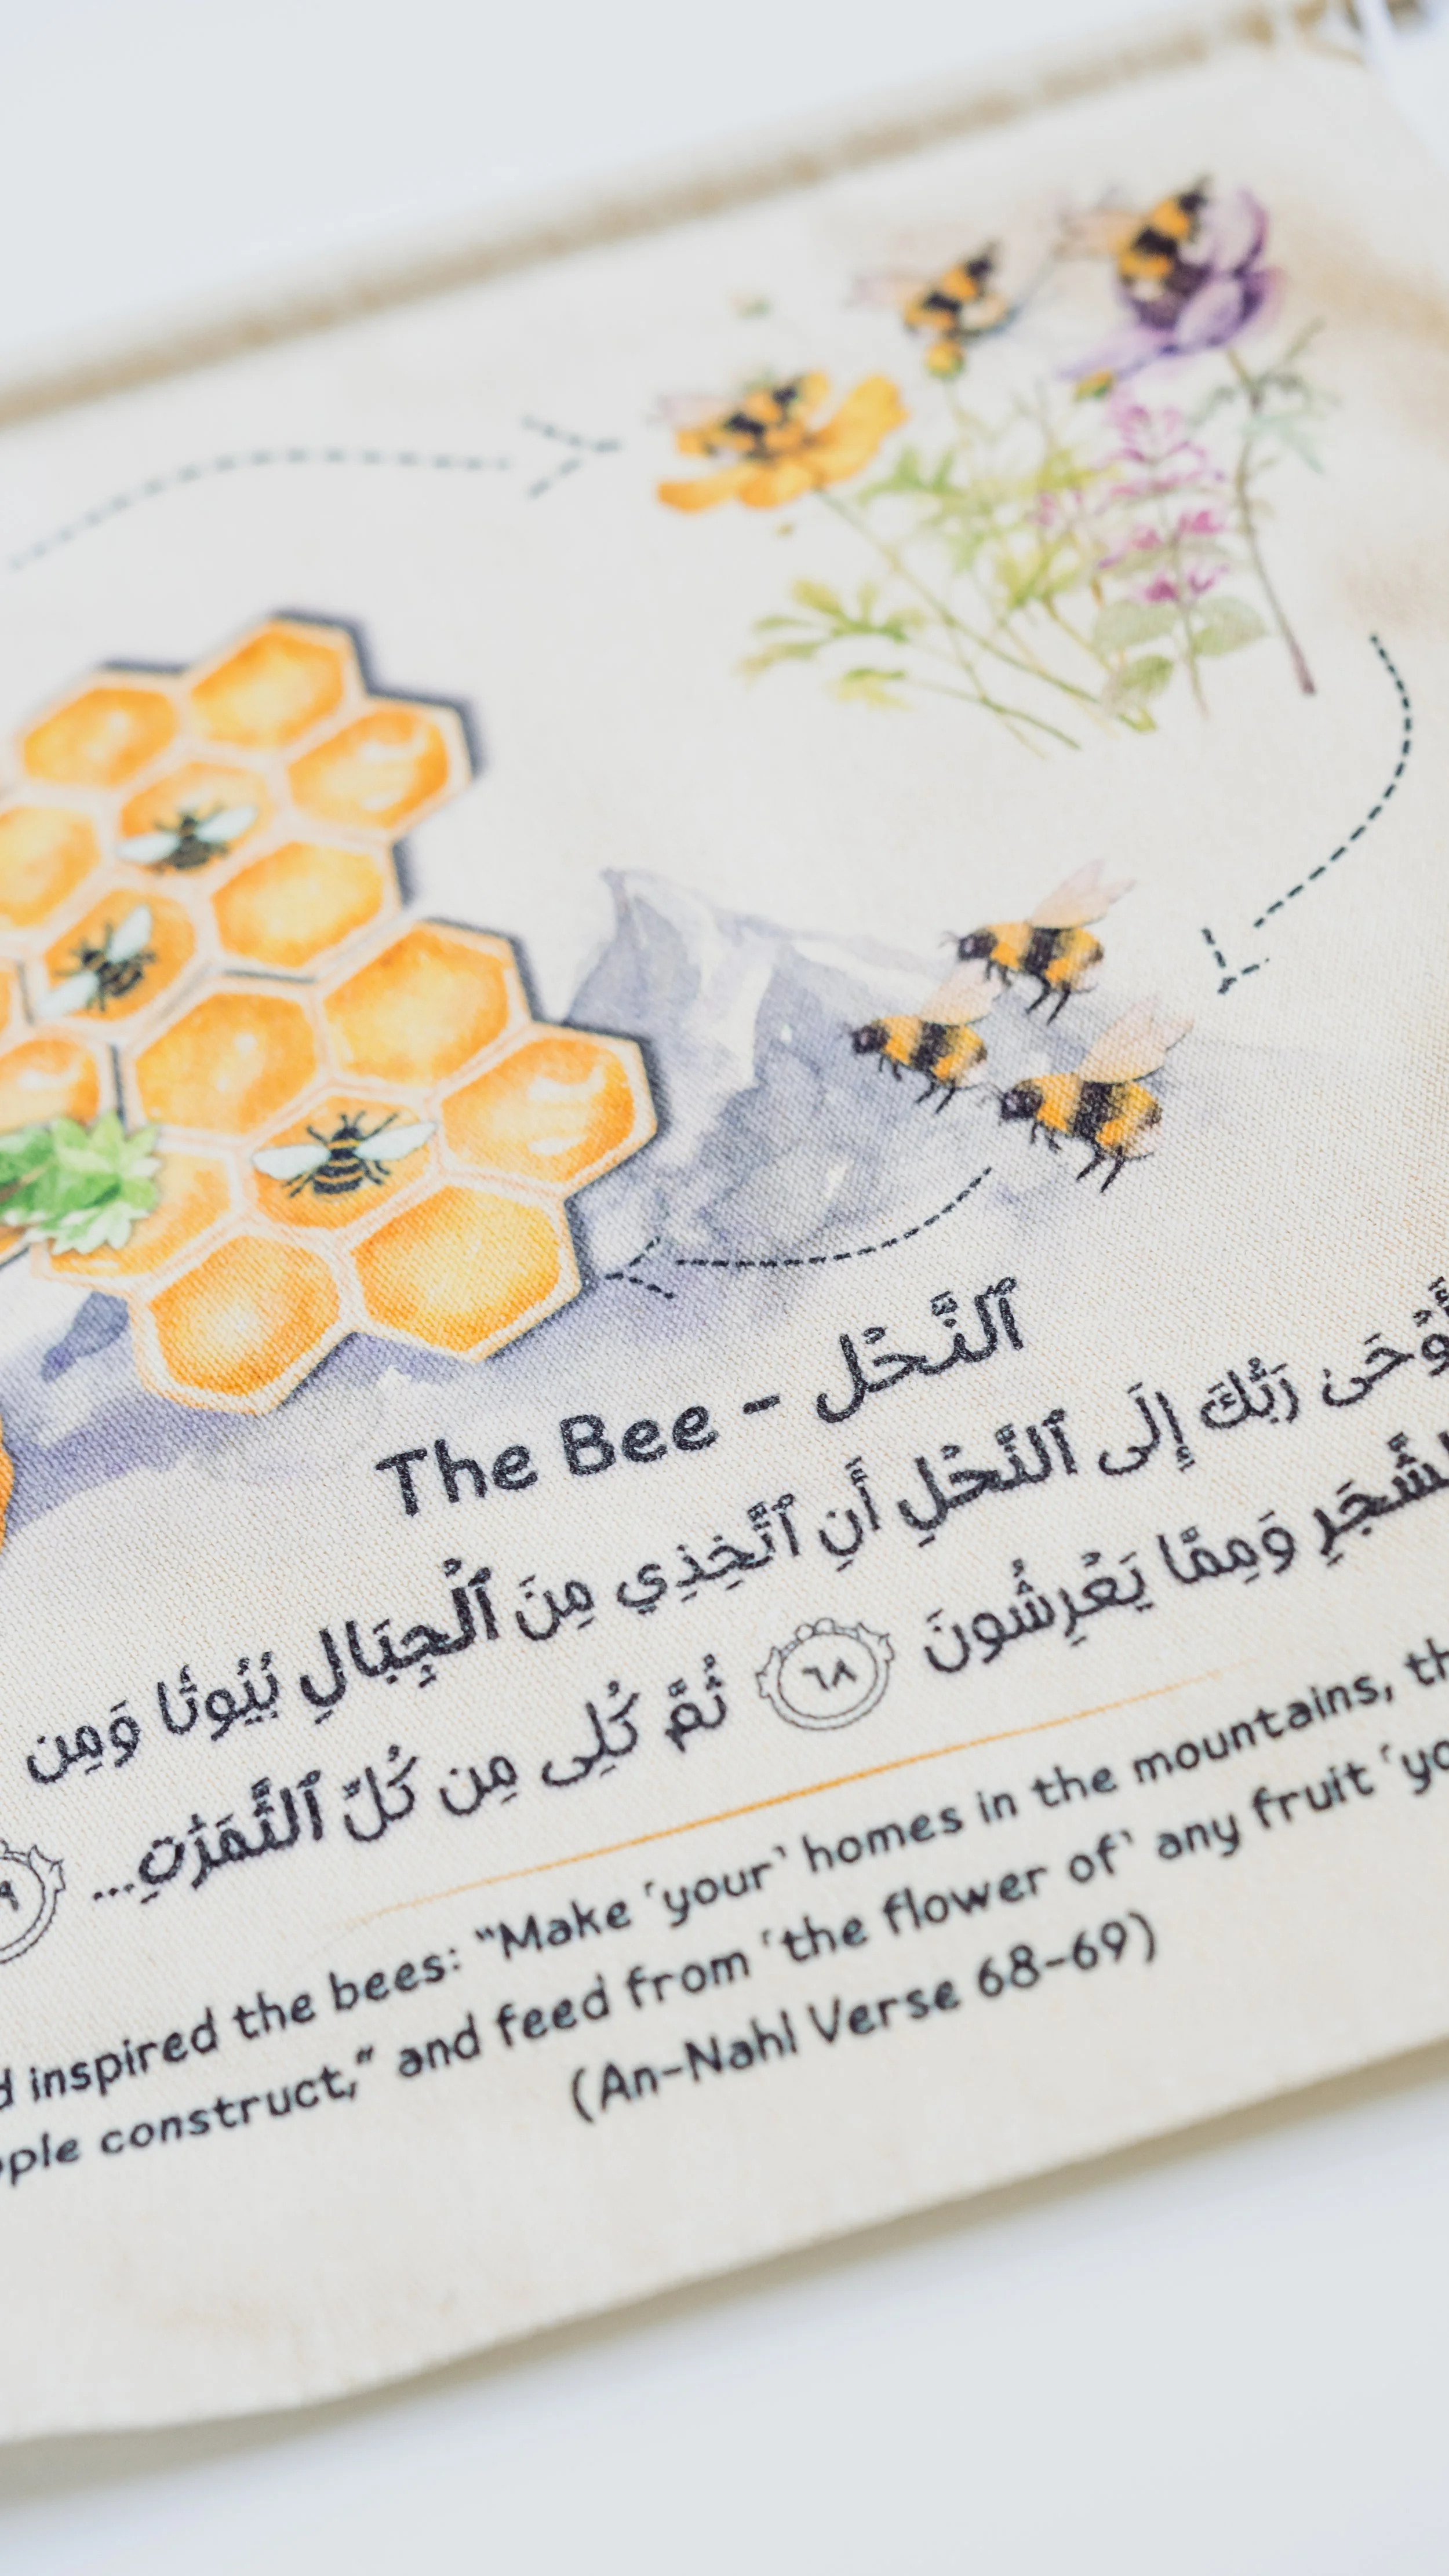 The Bee - ٱلنَّحْل
رَبُّكَ إِلَى ٱلنَّحْلِ أَنِ ٱتَّخِذِي مِنَ ٱلْجِبَالِ بُيُوتًا وَمِن
وَمِمَّا يَعْرِشُونَ ٦٨ ثُمَّ كُلِى مِن كُلِّ ٱلثَّمَرَٰتِ...
inspired the bees: “Make ˹your˺ homes in the mountains,
construct,” and feed from ˹the flower of˺ any fruit
(An-Nahl Verse 68-69)